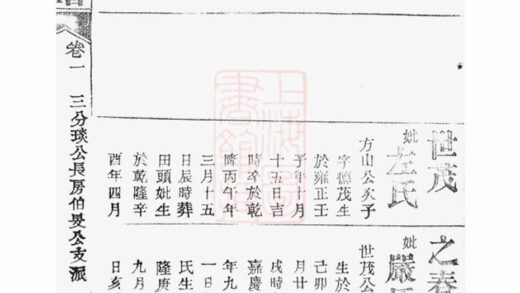 世茂
妣左氏
方山公次子
字德茂生
於雍正壬
子年十月
十五日吉
時卒於乾
隆丙午年
三月十五
日辰時葬
田頭妣生
於乾隆辛
酉年四月
之春
妣嚴
世茂公
生於
己卯
月廿
戌時
嘉慶
年九
一日
氏生
隆庚
九月
日亥
卷一
三分琰公長房伯旻公支派
上海圖書館藏